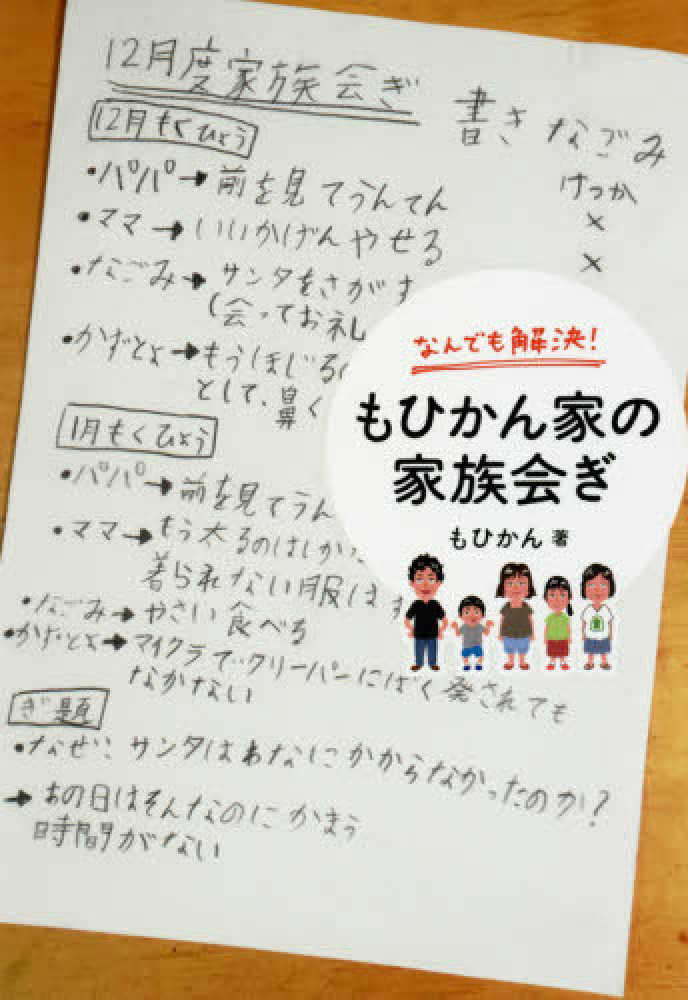 12月度家族会ぎ
書き なごみ
12月もくひょう
けっか
・パパ→前を見てうんてん ×
・ママ→いいかげんやせる ×
・なごみ→サンタをさがす
(会ってお礼
・かげとよ→もうほじるの
として、鼻く
1月もくひょう
・パパ→前を見てうん
・ママ→もう太るのはしかた
着られない服はす
・なごみ→やさい食べる
・かげとよ→マイクラでクリーパーにばく発されても
なかない
ぎ題
・なぜ:サンタはわなにかからなかったのか?
→あの日はそんなのにかまう
時間がない
なんでも解決!
もひかん家の
家族会ぎ
もひかん 著